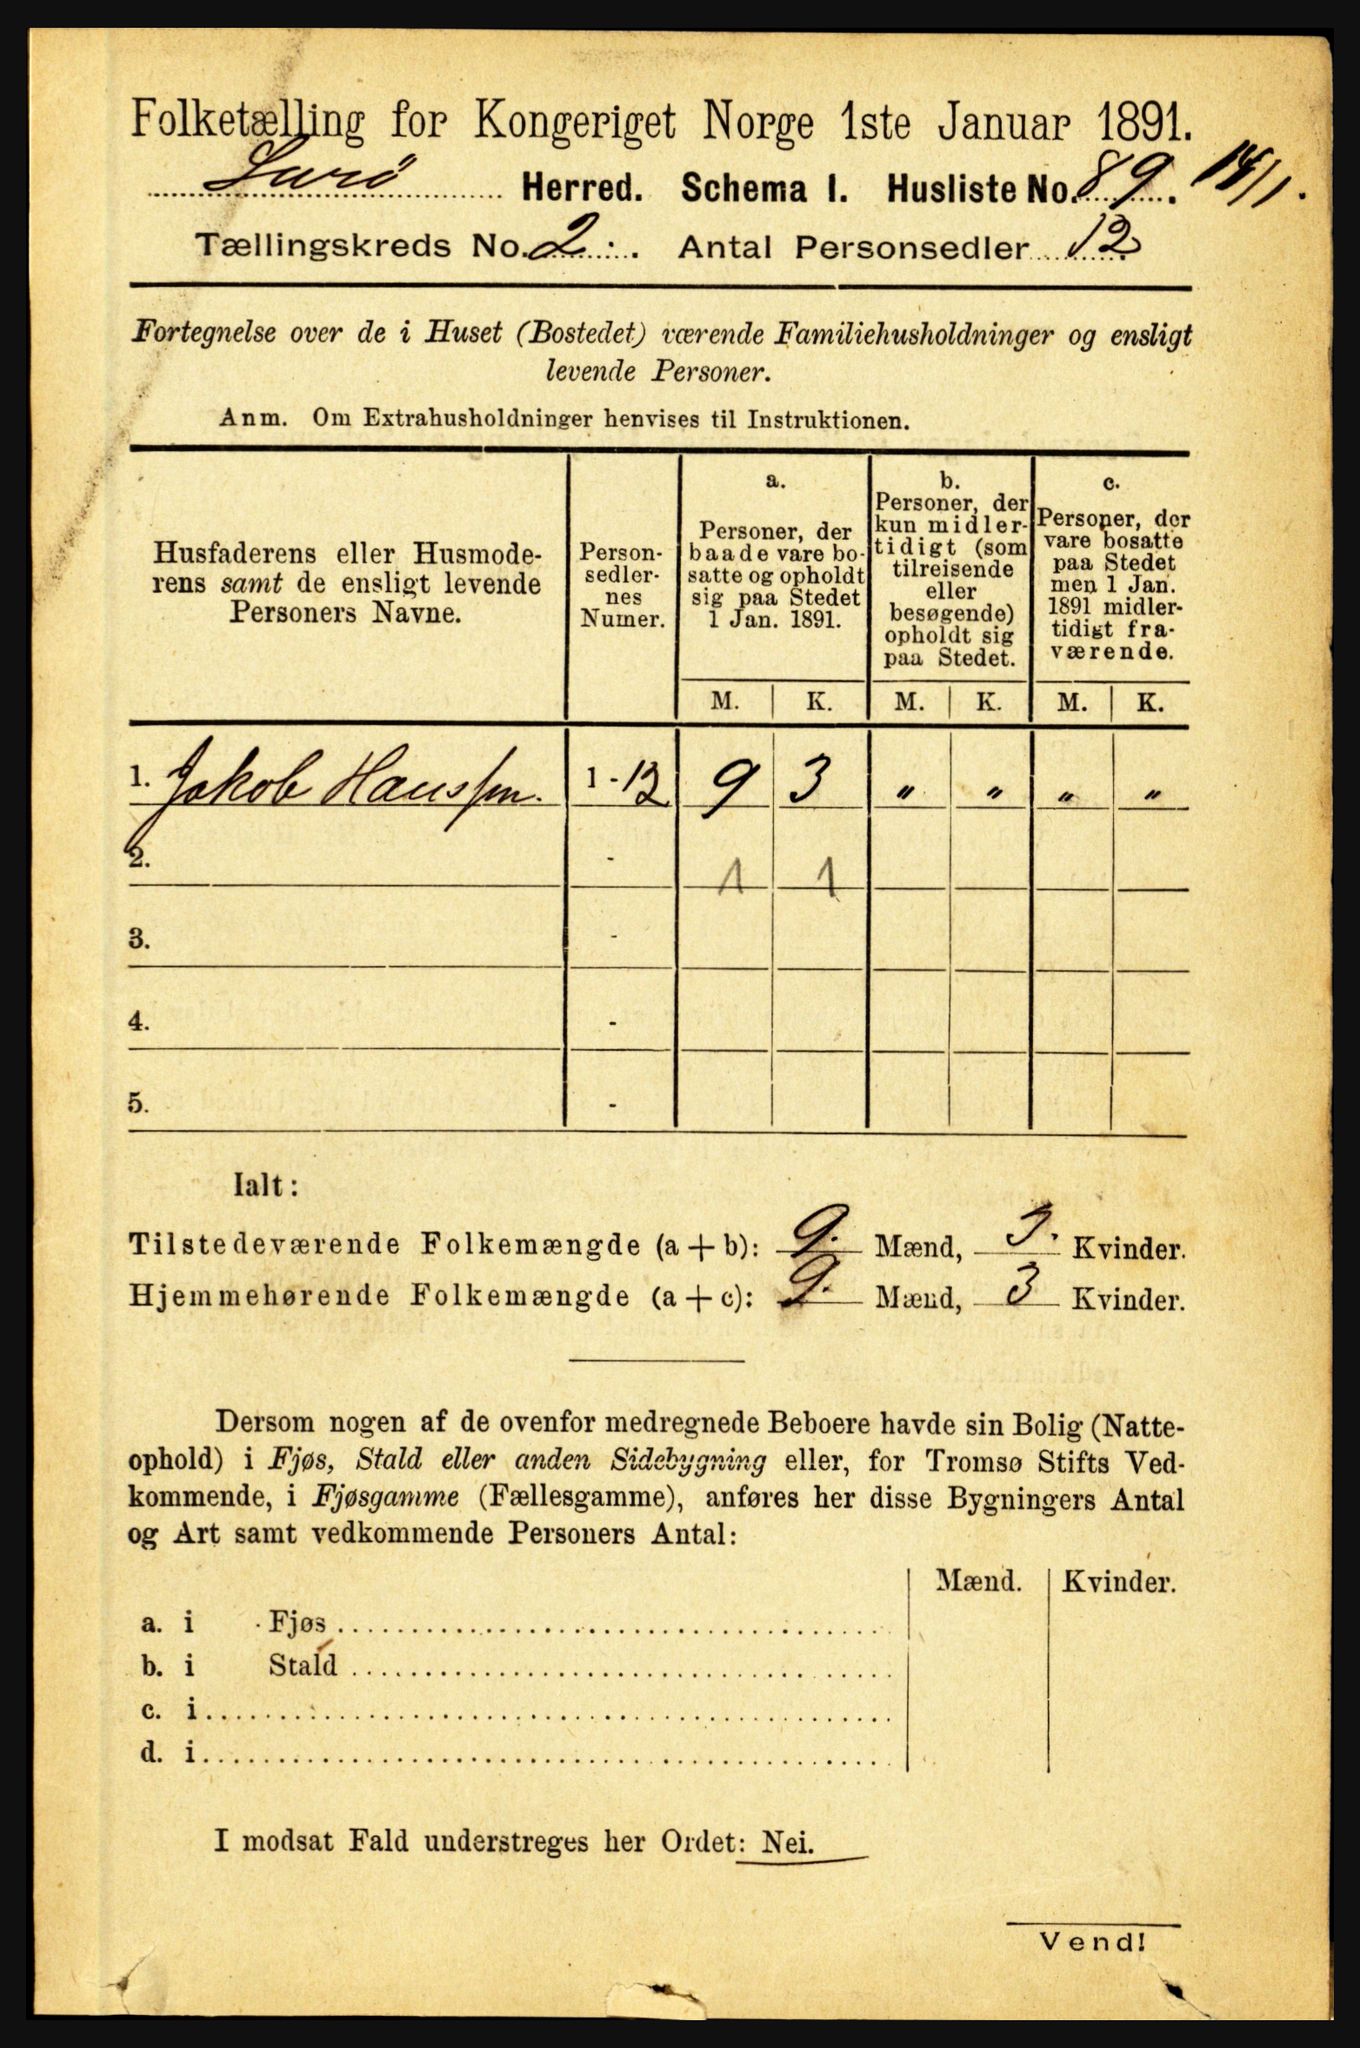 Folketælling for Kongeriget Norge 1ste Januar 1891.
Lurø Herred. Schema I. Husliste No. 89. 14/1.
Tællingskreds No. 2. Antal Personsedler 12
Fortegnelse over de i Huset (Bostedet) værende Familiehusholdninger og ensligt
levende Personer.
Anm. Om Extrahusholdninger henvises til Instruktionen.
Husfaderens eller Husmode-
rens samt de ensligt levende
Personers Navne.
Person-
sedler-
nes
Numer.
a.
Personer, der
baade vare bo-
satte og opholdt
sig paa Stedet
1 Jan. 1891.
b.
Personer, der
kun midler-
tidigt (som
tilreisende
eller
besøgende)
opholdt sig
paa Stedet.
c.
Personer, der
vare bosatte
paa Stedet
men 1 Jan.
1891 midler-
tidigt fra-
værende.
M. K. M. K. M. K.
1. Jakob Hanssen. 1-12 9 3 " " " "
2. - 1 1
3. -
4. -
5. -
Ialt:
Tilstedeværende Folkemængde (a+b): 9. Mænd, 3. Kvinder.
Hjemmehørende Folkemængde (a+c): 9. Mænd, 3 Kvinder.
Dersom nogen af de ovenfor medregnede Beboere havde sin Bolig (Natte-
ophold) i Fjøs, Stald eller anden Sidebygning eller, for Tromsø Stifts Ved-
kommende, i Fjøsgamme (Fællesgamme), anføres her disse Bygningers Antal
og Art samt vedkommende Personers Antal:
Mænd. Kvinder.
a. i Fjøs
b. i Stald
c. i
d. i
I modsat Fald understreges her Ordet: Nei.
Vend!